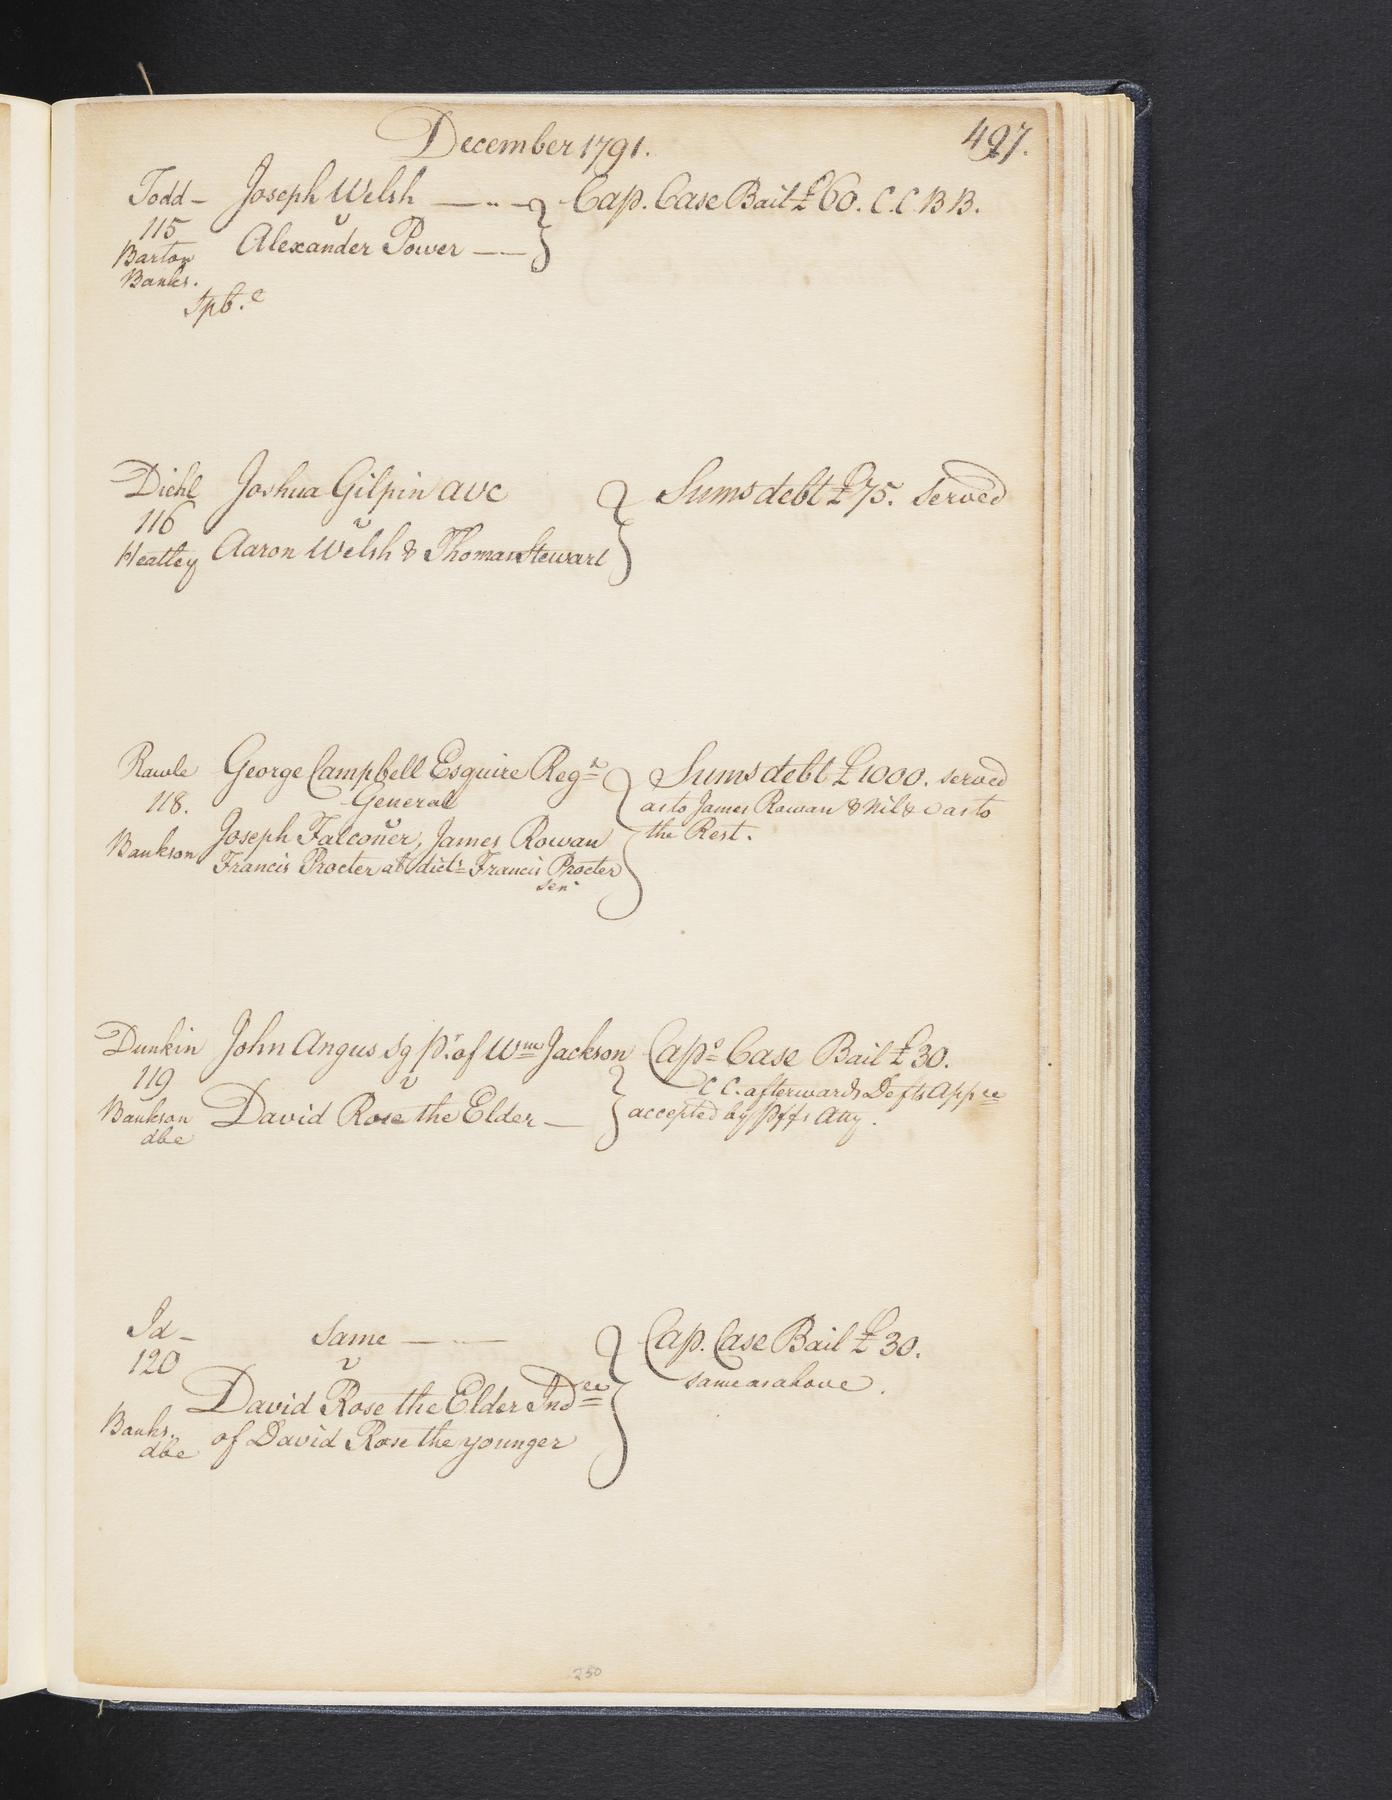 December 1791.
497.
Todd — Joseph Welsh — Cap. Case Bail £60. C.C. B B.
115 v
Barton Alexander Power —
Banks.
Spb.e
Diehl Joshua Gilpin avc Sums debt £75. served
116 v
Heatley Aaron Welsh & Thomas Stewart
Rawle George Campbell Esquire Regr Sums debt £1000. served
118. General as to James Rowan & Nil &c as to
v
Joseph Falconer, James Rowan the Rest.
Bankson Francis Procter Francis Procter
senr
Dunkin John Angus Sg pr. of Wm Jackson Caps Case Bail £30.
119 v C C. afterwards Defts Appce
Bankson David Rose the Elder — accepted by Plffs Atty.
dbe
Id — Same — Cap. Case Bail £30.
120 v same as above.
David Rose the Elder Indee
Banks. of David Rose the younger
dbe
250